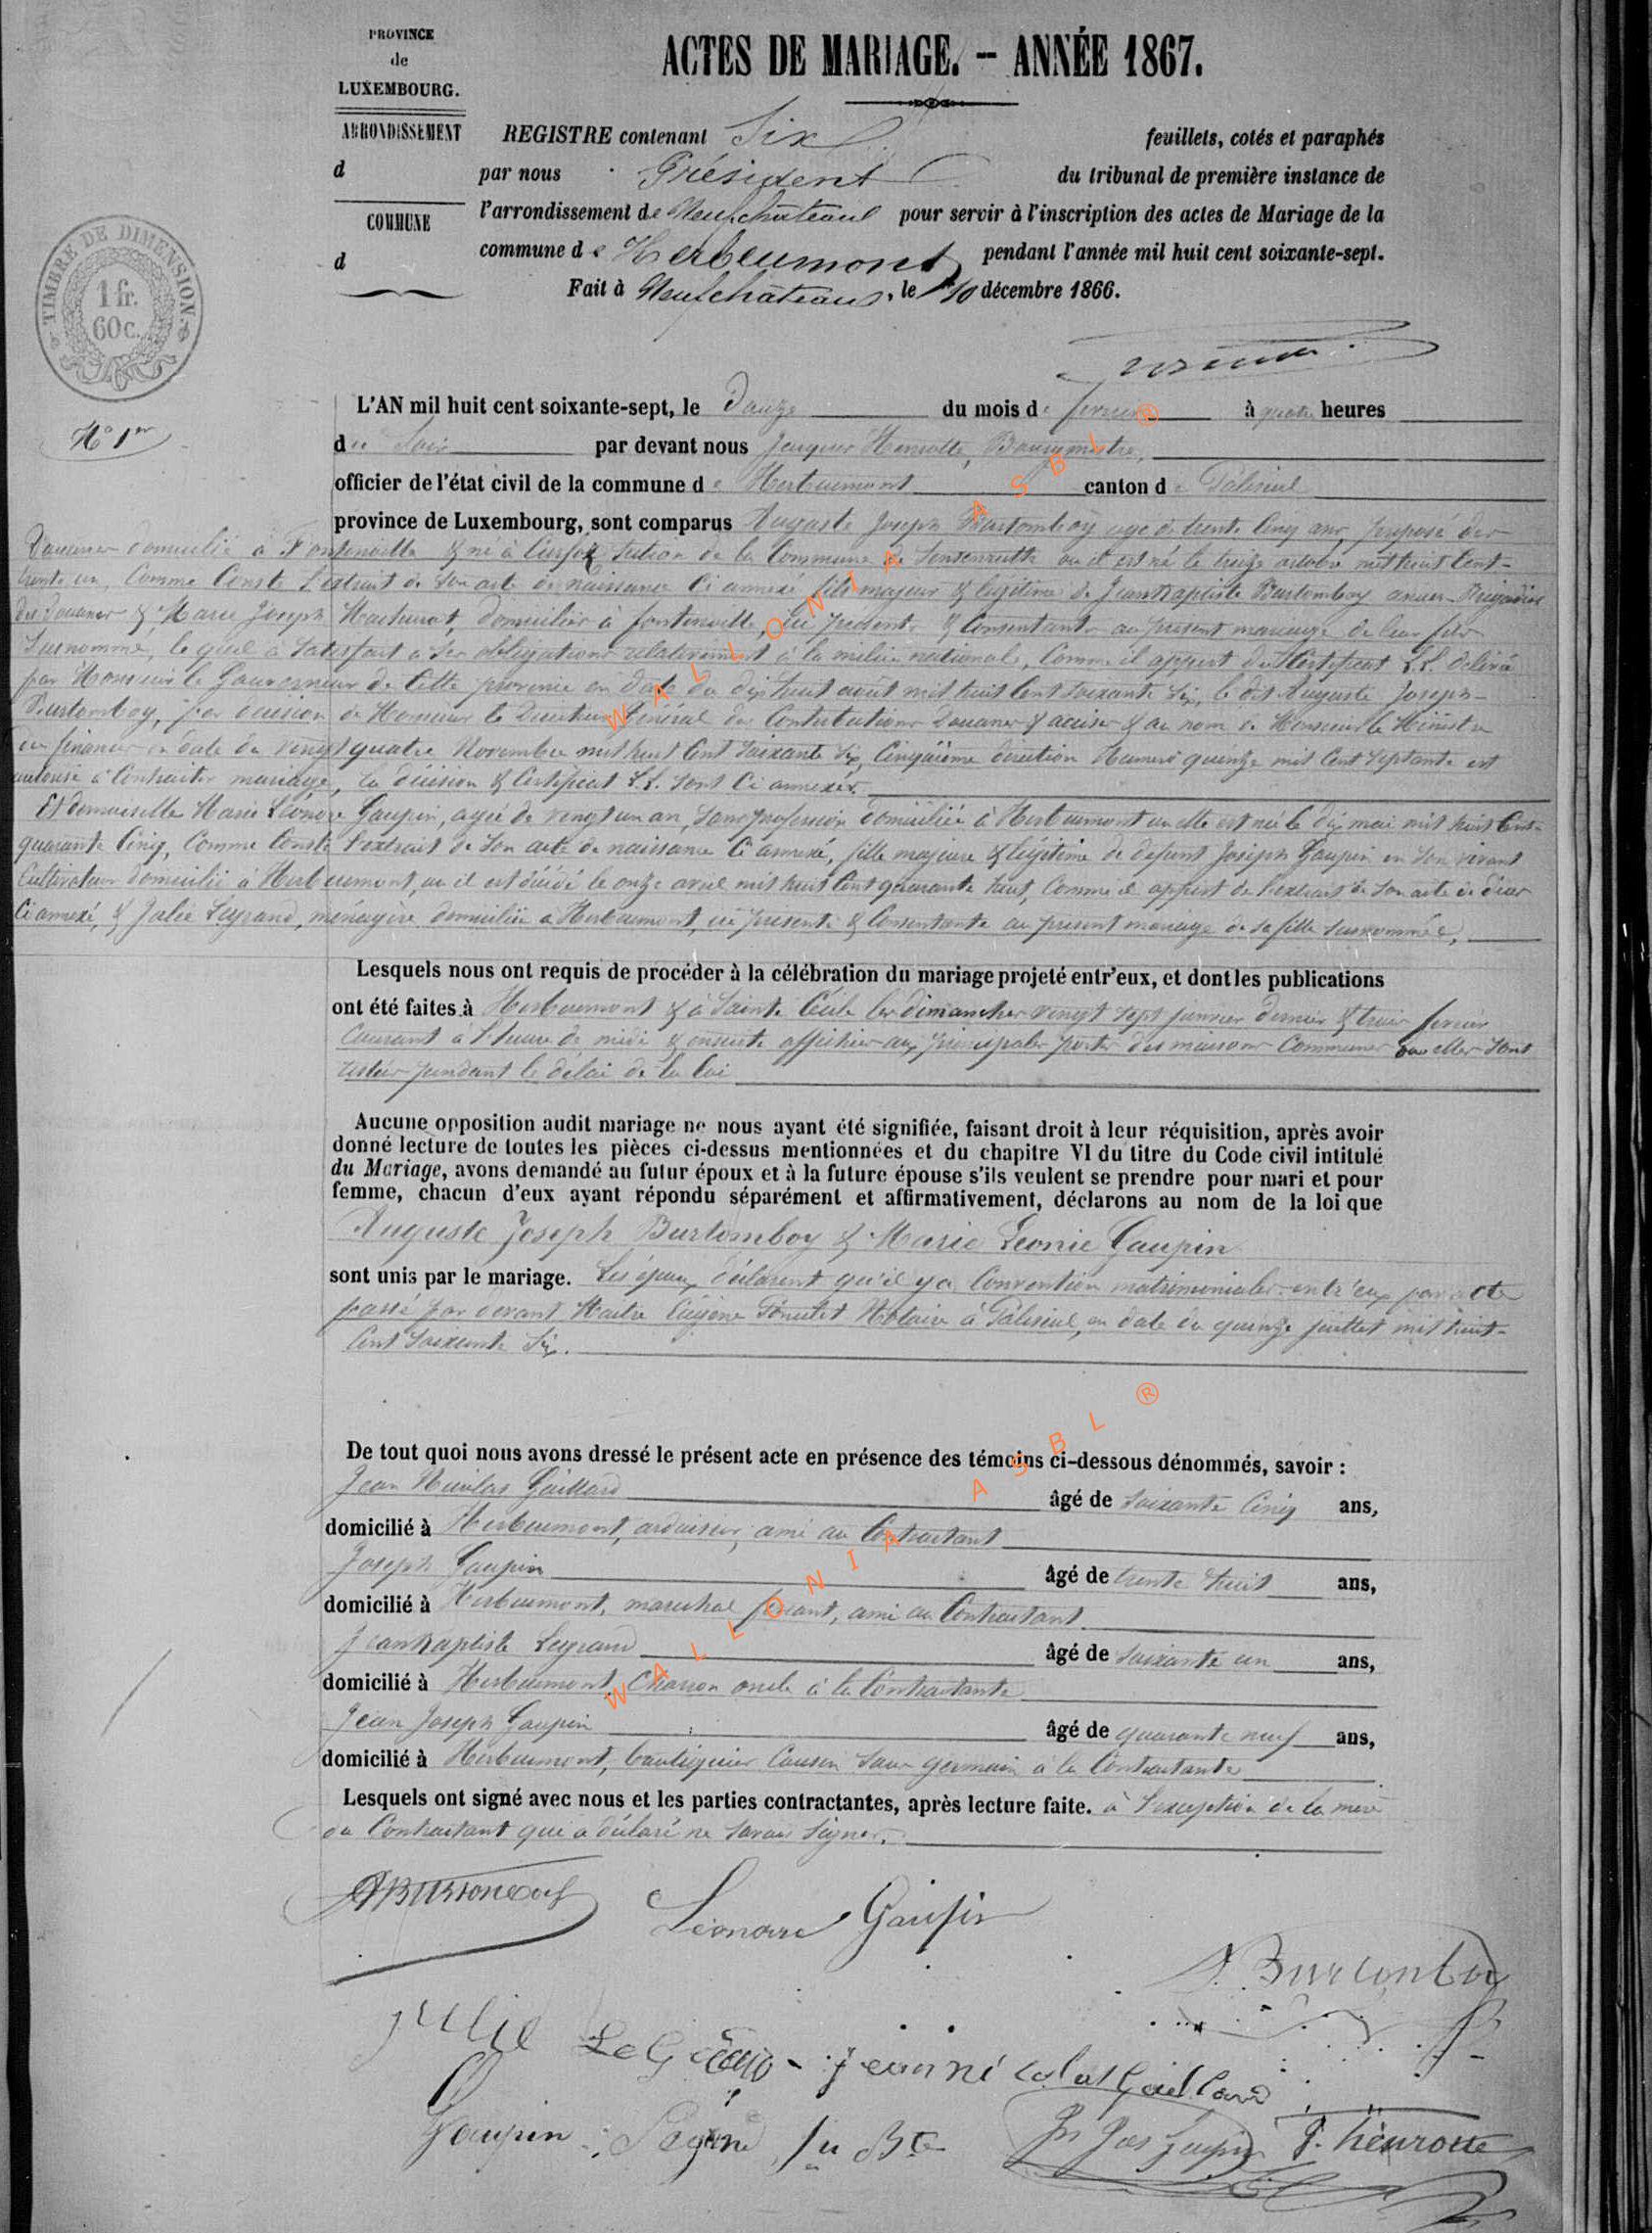 PROVINCE
de
LUXEMBOURG.
ARRONDISSEMENT
d
COMMUNE
d
TIMBRE DE DIMENSION
1 fr.
60 c.
ACTES DE MARIAGE. – ANNÉE 1867.
REGISTRE contenant Six feuillets, cotés et paraphés
par nous Président du tribunal de première instance de
l'arrondissement de Neufchâteau pour servir à l'inscription des actes de Mariage de la
commune de Herbeumont pendant l'année mil huit cent soixante-sept.
Fait à Neufchâteau, le 10 décembre 1866.
N° 1er
L'AN mil huit cent soixante-sept, le Douze du mois de fevrier à quatre heures
du Soir par devant nous Jacques Henrotte, Bourgmestre,
officier de l'état civil de la commune de Herbeumont canton de Paliseul
province de Luxembourg, sont comparus Auguste Joseph Burtomboy agé de trente Cinq ans, préposé des
Douanes domicilié à Fontenoille & né à section de la Commune de Sensenruth ou il est né le treize octobre mil huit Cent-
trente un, Comme Conste l'extrait de Son acte de naissance Ci annexé fils majeur & légitime de Jean Baptiste Burtomboy ancien Brigadier
des Douanes & Marie Joseph domiciliés à fontenoille, ici présents & Consentants au présent mariage de leur fils
Susnommé, le quel à Satisfait à Ses obligations relativement à la milice nationale, Comme il appert du Certificat L.L. délivré
par Monsieur le Gouverneur de Cette province en date du dix huit août mil huit Cent Soixante Six, le dit Auguste Joseph-
Burtomboy, par décision de Monsieur le Directeur Général des Contributions Douanes & accises & au nom de Monsieur le Ministre
des finances en date du vingt quatre Novembre mil huit Cent Soixante Six, Cinquième direction Numéro quinze mil Cent Septante est
autorisé à Contracter mariage, la décision & Certificat L.L. Sont Ci annexés
Et demoiselle Marie Léonore Gaupin, agée de vingt un an, Sans profession domiciliée à Herbeumont ou elle est née le dix mai mil huit Cent-
quarante Cinq, Comme Conste l'extrait de Son acte de naissance Ci annexé, fille majeure & légitime de défunt Joseph Gaupin en Son vivant
Cultivateur domicilié à Herbeumont, ou il est décédé le onze avril mil huit Cent quarante huit, Comme il appert de l'extrait de Son acte de décès
Ci annexé, & Julie Legrand, ménagère domiciliée à Herbeumont, ici présente & Consentante au présent mariage de sa fille Susnommée,
Lesquels nous ont requis de procéder à la célébration du mariage projeté entr'eux, et dont les publications
ont été faites à Herbeumont & à Sainte Cécile les dimanches vingt Sept janvier dernier & trois fevrier
Courant à l'heure de midi & ensuite affichées aux principales portes des maisons Communes ou elles Sont
restées pendant le délai de la loi
Aucune opposition audit mariage ne nous ayant été signifiée, faisant droit à leur réquisition, après avoir
donné lecture de toutes les pièces ci-dessus mentionnées et du chapitre VI du titre du Code civil intitulé
du Mariage, avons demandé au futur époux et à la future épouse s'ils veulent se prendre pour mari et pour
femme, chacun d'eux ayant répondu séparément et affirmativement, déclarons au nom de la loi que
Auguste Joseph Burtomboy & Marie Leonie Gaupin
sont unis par le mariage. Les époux déclarent qu'il y a Convention matrimoniale entr'eux par acte
passé par devant Maitre Eugène Notaire à Paliseul, en date du quinze juillet mil huit-
Cent Soixante Six.
De tout quoi nous avons dressé le présent acte en présence des témoins ci-dessous dénommés, savoir :
Jean Nicolas Gaillard âgé de Soixante Cinq ans,
domicilié à Herbeumont, ardoisier, ami au Contractant
Joseph Gaupin âgé de trente huit ans,
domicilié à Herbeumont, maréchal ferrant, ami au Contractant
Jean Baptiste Legrand âgé de Soixante un ans,
domicilié à Herbeumont, Charron oncle à la Contractante
Jean Joseph Gaupin âgé de quarante neuf ans,
domicilié à Herbeumont, boutiquier Cousin Sous germain à la Contractante
Lesquels ont signé avec nous et les parties contractantes, après lecture faite. à l'exception de la mère
du Contractant qui a déclaré ne Savoir Signer.
Léonore Gaupin
Julie LeGrand - jean nicolas Gaillard
Gaupin Legrand Jn Bte Jn Jos Gaupin J. henrotte
WALLONIA ASBL ®
WALLONIA ASBL ®